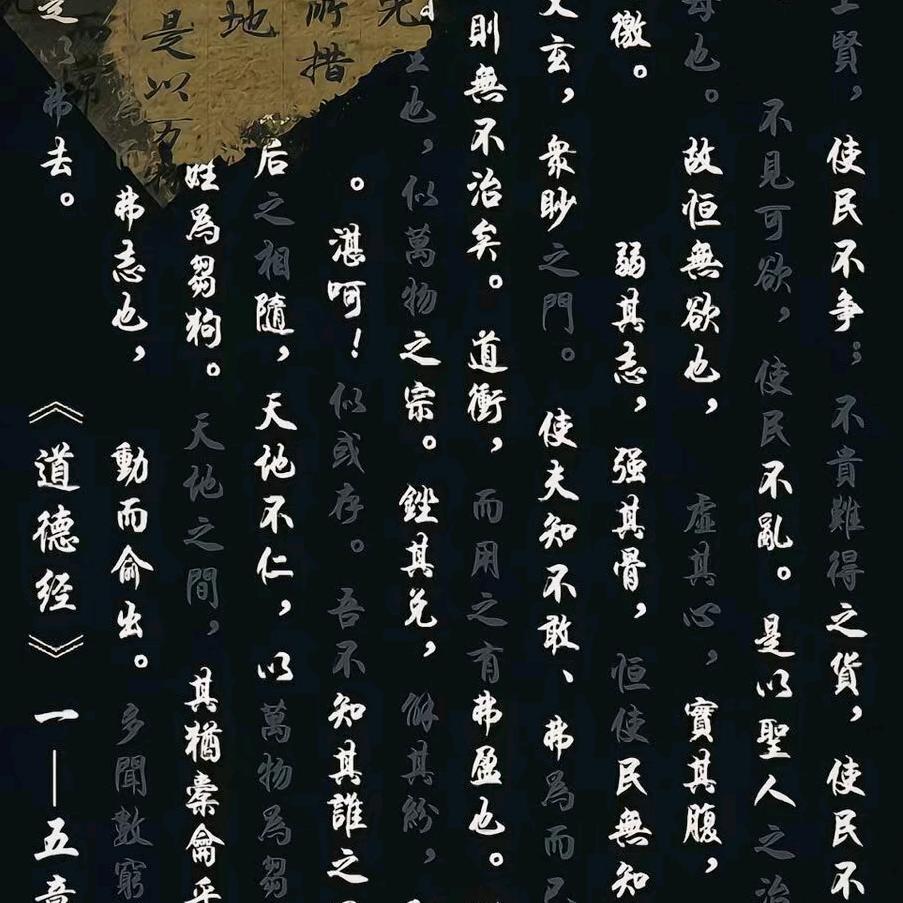 上賢，使民不爭；不貴難得之貨，使民不
不見可欲，使民不亂。是以聖人之治
母也。故恒無欲也，虛其心，實其腹，
徼。弱其志，强其骨，恒使民無知
玄，衆眇之門。使夫知不敢、弗為而
則無不治矣。道衝，而用之有弗盈也。
也，似萬物之宗。銼其兌，解其紛，
。湛呵！似或存。吾不知其誰之
后之相隨，天地不仁，以萬物為芻
姓為芻狗。天地之間，其猶橐龠乎
而弗志也，動而俞出。多聞數窮
是以弗去。《道德经》一——五章
所措
地
是以万